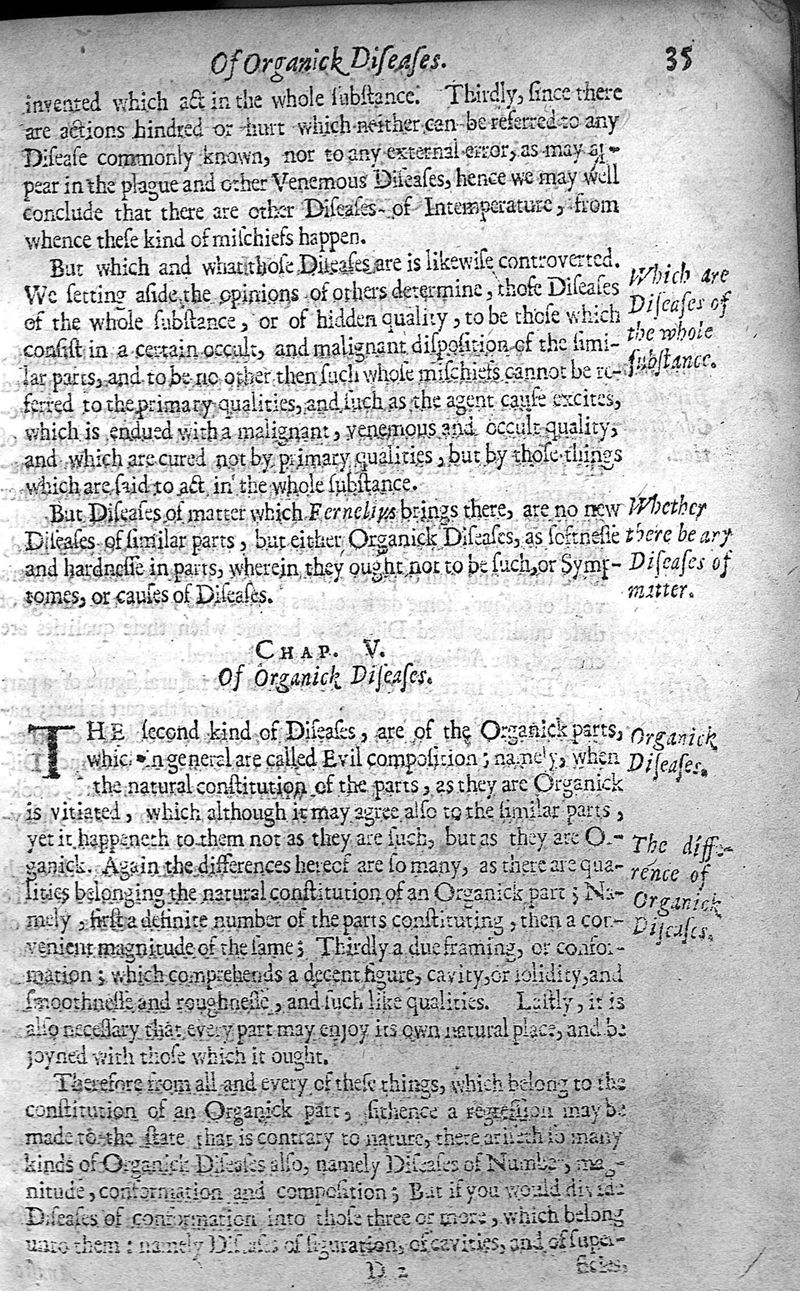 Of Organick Diſeaſes. 35
invented which act in the whole ſubſtance. Thirdly, ſince there
are actions hindred or hurt which neither can be referred to any
Diſeaſe commonly known, nor to any external error, as may ap-
pear in the plague and other Venemous Diſeaſes, hence we may well
conclude that there are other Diſeaſes of Intemperature, from
whence theſe kind of miſchiefs happen.
But which and what thoſe Diſeaſes are is likewiſe controverted.
We ſetting aſide the opinions of others determine, thoſe Diſeaſes
of the whole ſubſtance, or of hidden quality, to be thoſe which
conſiſt in a certain occult, and malignant diſpoſition of the ſimi-
lar parts, and to be no other then ſuch whoſe miſchiefs cannot be re-
ferred to the primary qualities, and ſuch as the agent cauſe excites,
which is endued with a malignant, venemous and occult quality,
and which are cured not by primary qualities, but by thoſe things
which are ſaid to act in the whole ſubſtance.
Which are
Diſeaſes of
the whole
ſubſtance.
But Diſeaſes of matter which Fernelius brings there, are no new
Diſeaſes of ſimilar parts, but either Organick Diſeaſes, as ſoftneſſe
and hardneſſe in parts, wherein they ought not to be ſuch, or Symp-
tomes, or cauſes of Diſeaſes.
Whether
there be any
Diſeaſes of
matter.
CHAP. V.
Of Organick Diſeaſes.
THE ſecond kind of Diſeaſes, are of the Organick parts,
which in general are called Evil compoſition; namely, when
the natural conſtitution of the parts, as they are Organick
is vitiated, which although it may agree alſo to the ſimilar parts,
yet it happeneth to them not as they are ſuch, but as they are O-
ganick. Again the differences hereof are ſo many, as there are qua-
lities belonging the natural conſtitution of an Organick part; Na-
mely, firſt a definite number of the parts conſtituting, then a con-
venient magnitude of the ſame; Thirdly a due framing, or confor-
mation; which comprehends a decent figure, cavity, or ſolidity, and
ſmoothneſſe and roughneſſe, and ſuch like qualities. Laſtly, it is
alſo neceſſary that every part may enjoy its own natural place, and be
joyned with thoſe which it ought.
Organick
Diſeaſes.
The diffe-
rence of
Organick
Diſeaſes.
Therefore from all and every of theſe things, which belong to the
conſtitution of an Organick part, ſithence a regreſſion may be
made to the ſtate that is contrary to nature, there ariſeth ſo many
kinds of Organick Diſeaſes alſo, namely Diſeaſes of Number, mag-
nitude, conformation and compoſition; But if you would divide
Diſeaſes of conformation into thoſe three or more, which belong
unto them: namely Diſeaſes of figuration, of cavities, and of ſuper-
D 2 ficies,